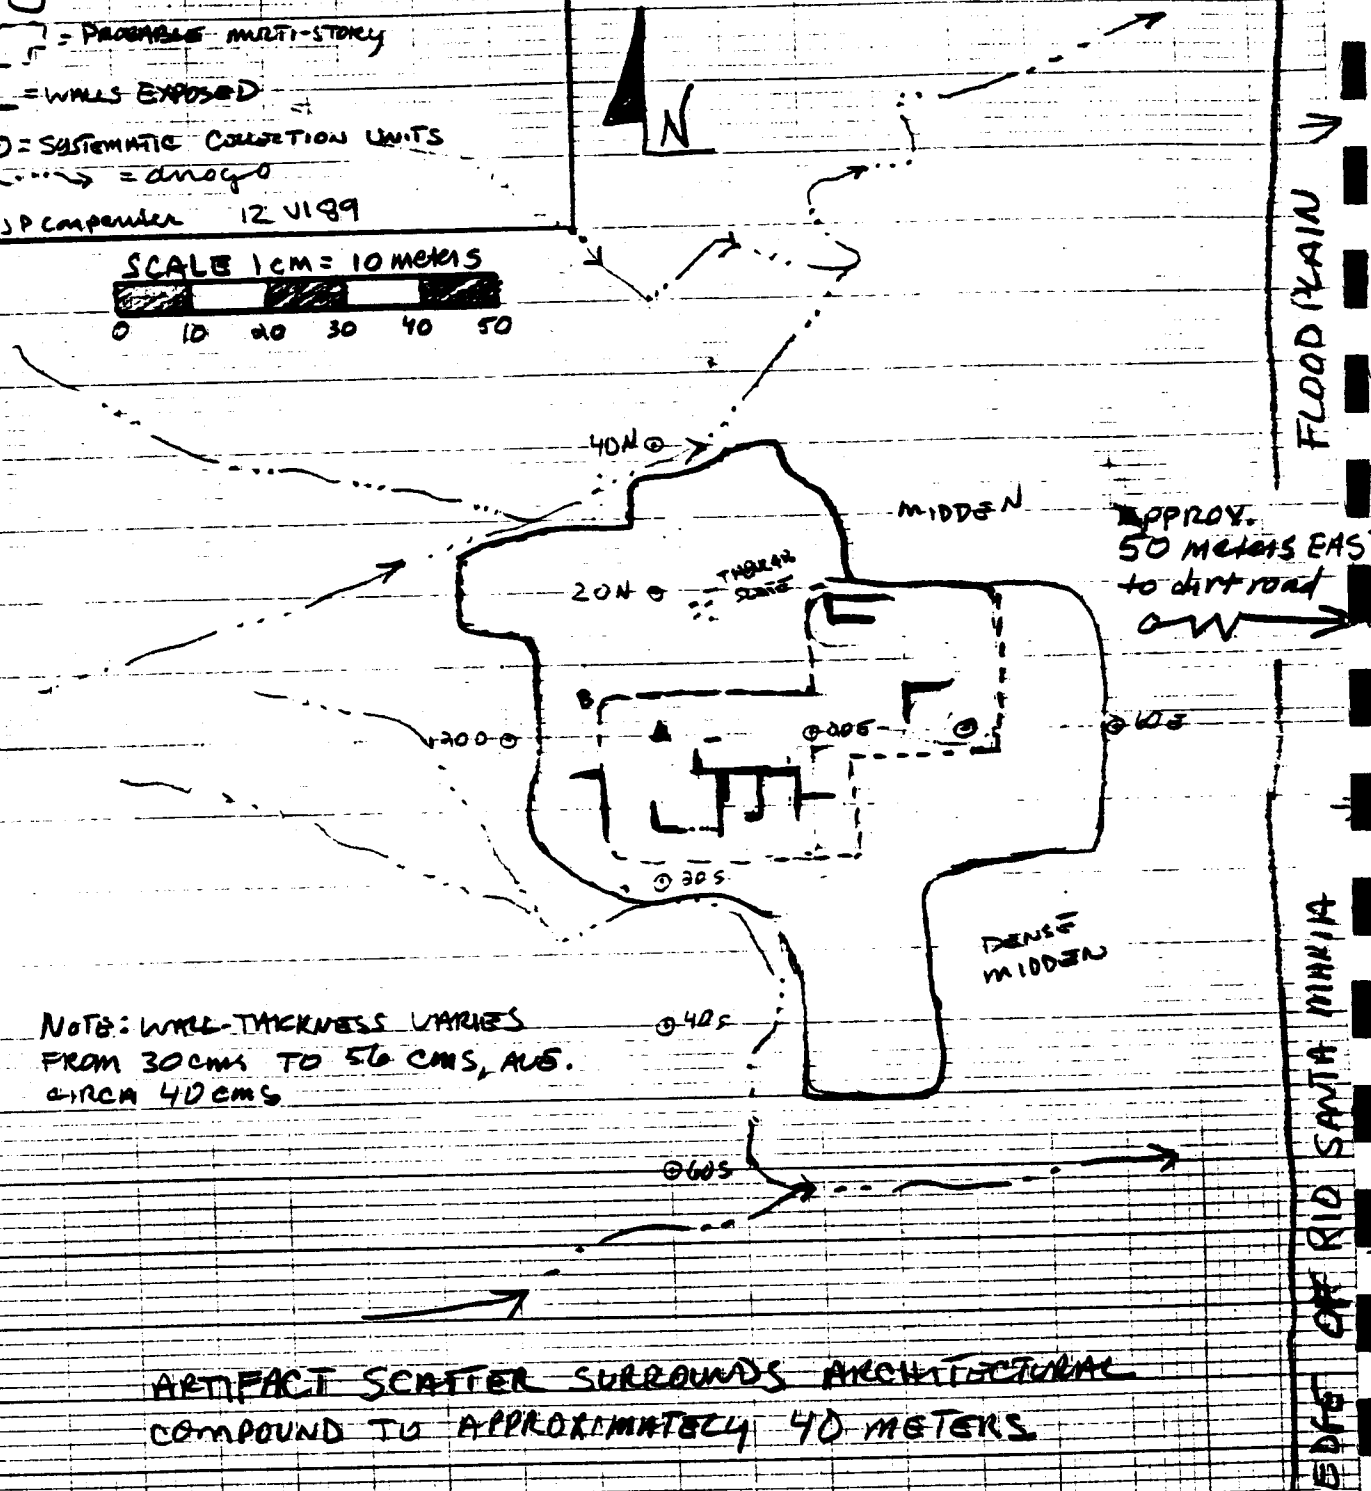 = PROBABLE MULTI-STORY
= WALLS EXPOSED
= SYSTEMATIC COLLECTION UNITS
= arroyo
JP Carpenter 12 VI 89
N
SCALE 1cm = 10 meters
0 10 20 30 40 50
FLOODPLAIN
40N
MIDDEN
APPROX.
50 meters EAS
to dirt road
20N
TABULAR
B
A
20E
60E
20S
DENSE
MIDDEN
NOTE: WALL-THICKNESS VARIES
FROM 30 cms TO 56 CMS, AVE.
CIRCA 40 cms
40S
60S
EDGE OF RIO SANTA MARIA
ARTIFACT SCATTER SURROUNDS ARCHITECTURAL
COMPOUND TO APPROXIMATELY 40 METERS